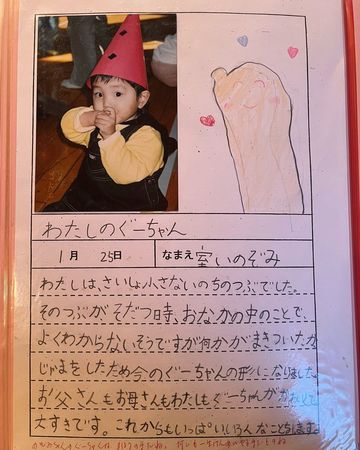 わたしのぐーちゃん
1月 25日 なまえ 室いのぞみ
わたしは、さいしょ小さないのちのつぶでした。
そのつぶがそだつ時、おなかの中のことで
よくわからないそうですが何かがまきついたか
じゃまをしたため今のぐーちゃんの形になりました。
お父さんもお母さんもわたしもぐーちゃんが
大すきです。これからもいっぱいいろんなことをします。